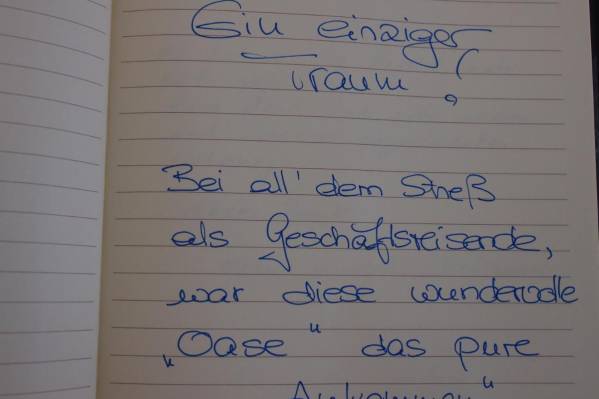 Ein einziger
Traum!
Bei all' dem Streß
als Geschäftsreisende,
war diese wundervolle
„Oase" das pure
Ankommen"